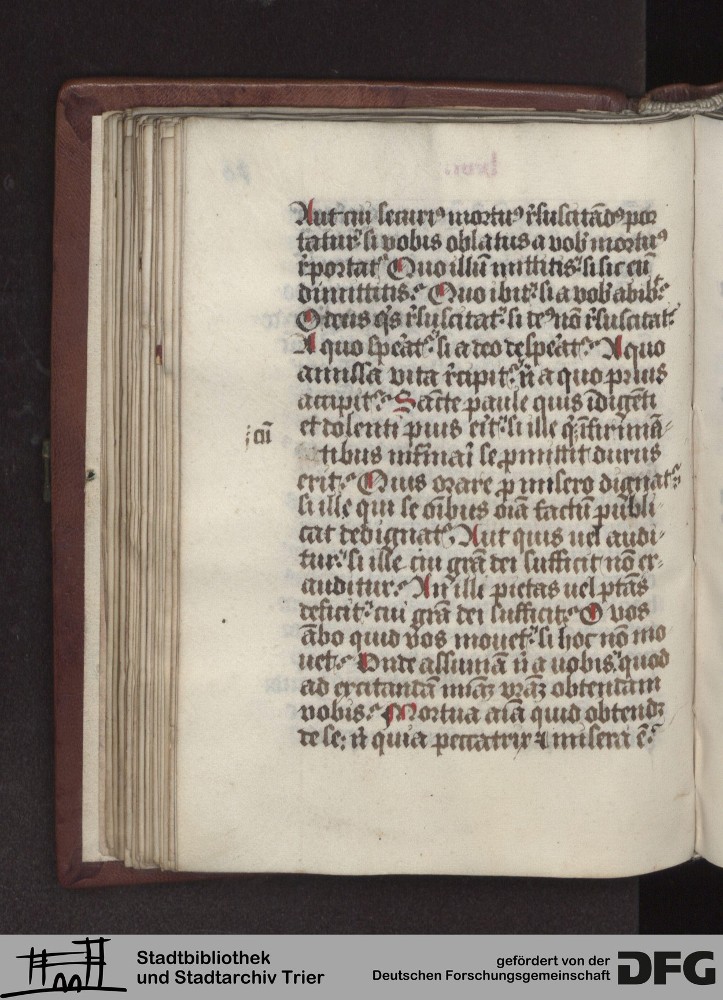 Aut cui securꝰ mortuꝰ r̄suscitādꝰ por
tatur si vobis oblatus a vob̄ mortuꝰ
r̄portat̄ Quo illū mittitis si sic eū
dimittitis Quo ibit si a vob̄ abibit
O deus q̄s r̄suscitat si deꝰ nō r̄suscitat
A quo spēat si a deo despēat A quo
amissa vita r̄cipit n̄ a quo prius
accipit Sācte paule quis īdigēti
et dolenti pius erit si ille q̄ īfirmā-
ȷcū
tibus infirmari se promittit durus
erit Quis orare p̄ misero dignat̄
si ille qui se oībus oīa factū publi
cat dedignat̄ Aut quis uel audi-
tur si ille cui grā dei sufficit nō ex-
auditur An illi pietas uel ptās
deficit cui grā dei sufficit O vos
ābo quid vos mouet si hoc nō mo
uet Vnde assumā n̄ a uobis quod
ad excitandā miāꝫ vrāꝫ obtendam
vobis Mortua aīa quid obtendꝫ
de se n̄ quia peccatrix ⁊ misera ē
Stadtbibliothek
und Stadtarchiv Trier
gefördert von der
Deutschen Forschungsgemeinschaft
DFG